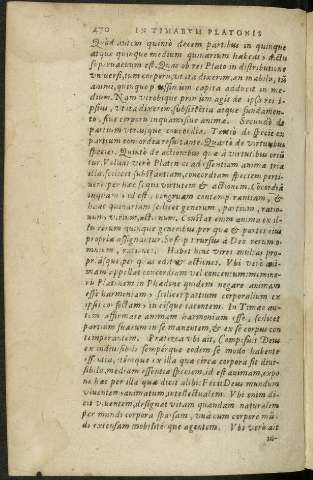 470 IN TIMAEVM PLATONIS
Quòd autem quinto decem partibus in quinque
atque quinque medium quinarium habeat,
est. Quae ob rei Plato in distributione
vniuersi, tum corporu, vita dixerim,
animi, quinque capita adducit in me
dium. Nam vtrobique primùm agit de ipsa rei
ipsius, vita dixerim, substantia atque fundamen
to, siue corporis inquam, siue animae. Secundò de
partium vtriusque concordia. Tertiò de specie ex
partium concordia resultante. Quartò de virtutibus
speciei. Quintò de actionibus quae à virtutibus oriũ
tur. Voluit verò Plato ad essentiam animae tria
illa, scilicet substantiam, concordiam, speciem perti
nere, per haec signa virtutem & actionem. Cõcordiã
inquam, id est, congruam contemperantiam, &
haec quinariam, scilicet generum, partium, ratio-
num, virium, actionum. Constat enim anima ex il-
lis rerum quinque generibus per quae & partes eius
propria assignantur. Sortitur rursus à Deo rerum om-
nium, rationes. Habet hinc vires multas pro-
prias per quas edit & actiones. Vbi verò ani-
mam appellat concordiam vel concentum: memine-
ris Platonem in Phaedone quidem negare animam
esse harmoniam, scilicet partium corporalium ex
ipsis confectam, in eisque iacentem. In Timaeo au-
tem affirmare animam harmoniam esse, scilicet
partium suarum in se manentem, & ex se corpus con
temperantem. Praeterea vbi ait, Composuit Deus
ex indiuisibili sempérque eodem se modo habente
essentia, itémque ex illa quae circa corpora fit diui-
sibilis, mediam essentiae speciem, id est animam, expo
ne haec per illa quae dicit alibi: Fecit Deus mundum
viuentem animatum, intellectualem. Vbi enim di-
cit viuentem, designat vitam quandam naturalem
per mundi corpora sparsam, vnà cum corpore mũ-
di extensam mobilitér que agentem. Vbi verò ait